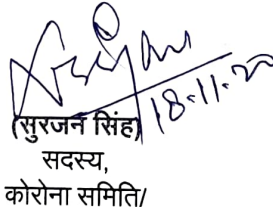 18.11.20
(सुरजन सिंह)
सदस्य,
कोरोना समिति/